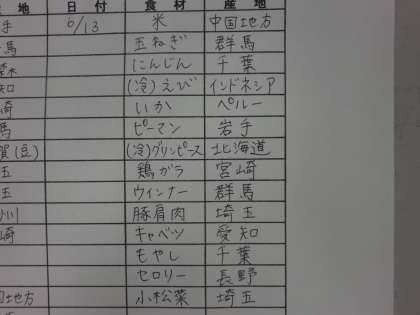 地 日付 食材 産地
手 6/13 米 中国地方
馬 玉ねぎ 群馬
にんじん 千葉
知 (冷)えび インドネシア
崎 いか ペルー
馬 ピーマン 岩手
賀(豆) (冷)グリンピース 北海道
玉 鶏ガラ 宮崎
玉 ウィンナー 群馬
川 豚肩肉 埼玉
崎 キャベツ 愛知
もやし 千葉
セロリー 長野
地方 小松菜 埼玉